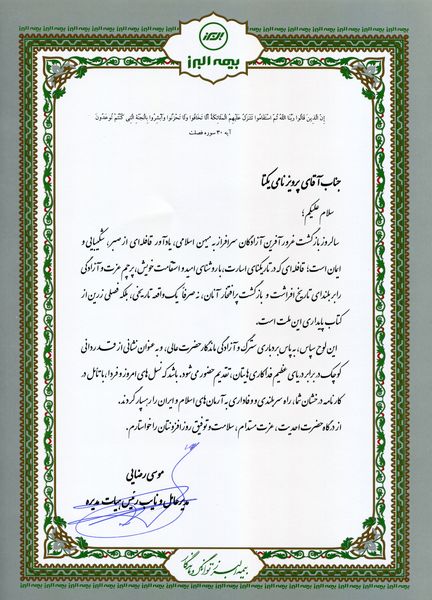 البرز
بیمه البرز
إِنَّ الَّذِينَ قَالُوا رَبُّنَا اللَّهُ ثُمَّ اسْتَقَامُوا تَتَنَزَّلُ عَلَيْهِمُ الْمَلَائِكَةُ أَلَّا تَخَافُوا وَلَا تَحْزَنُوا وَأَبْشِرُوا بِالْجَنَّةِ الَّتِي كُنْتُمْ تُوعَدُونَ
آیه ۳۰ سوره فصلت
جناب آقای پرویز نامی یکتا
سلام علیکم؛
سالروز بازگشت غرورآفرین آزادگان سرافراز به میهن اسلامی، یادآور قافله‌ای از صبر، شکیبایی و
ایمان است؛ قافله‌ای که در تاریکنای اسارت، با روشنای امید و استقامت خویش، پرچم عزت و آزادگی
را بر بلندای تاریخ افراشت و بازگشت پرافتخار آنان، نه صرفاً یک واقعه تاریخی، بلکه فصلی زرین از
کتاب پایداری این ملت است.
این لوح سپاس، به پاس بردباری سترگ و آزادگی ماندگار حضرت عالی، و به عنوان نشانی از قدردانی
کوچک در برابر دریای عظیم فداکاری هایتان، تقدیم حضور می‌شود. باشد که نسل های امروز و فردا، با تأمل در
کارنامه درخشان شما، راه سربلندی و وفاداری به آرمان های اسلام و ایران را رهسپار گردند.
از درگاه حضرت احدیت، عزت مستدام، سلامت و توفیق روز افزونتان را خواستارم.
موسی رضایی
مدیرعامل و نایب رئیس هیات مدیره
بیمه البرز توانگر و ماندگار